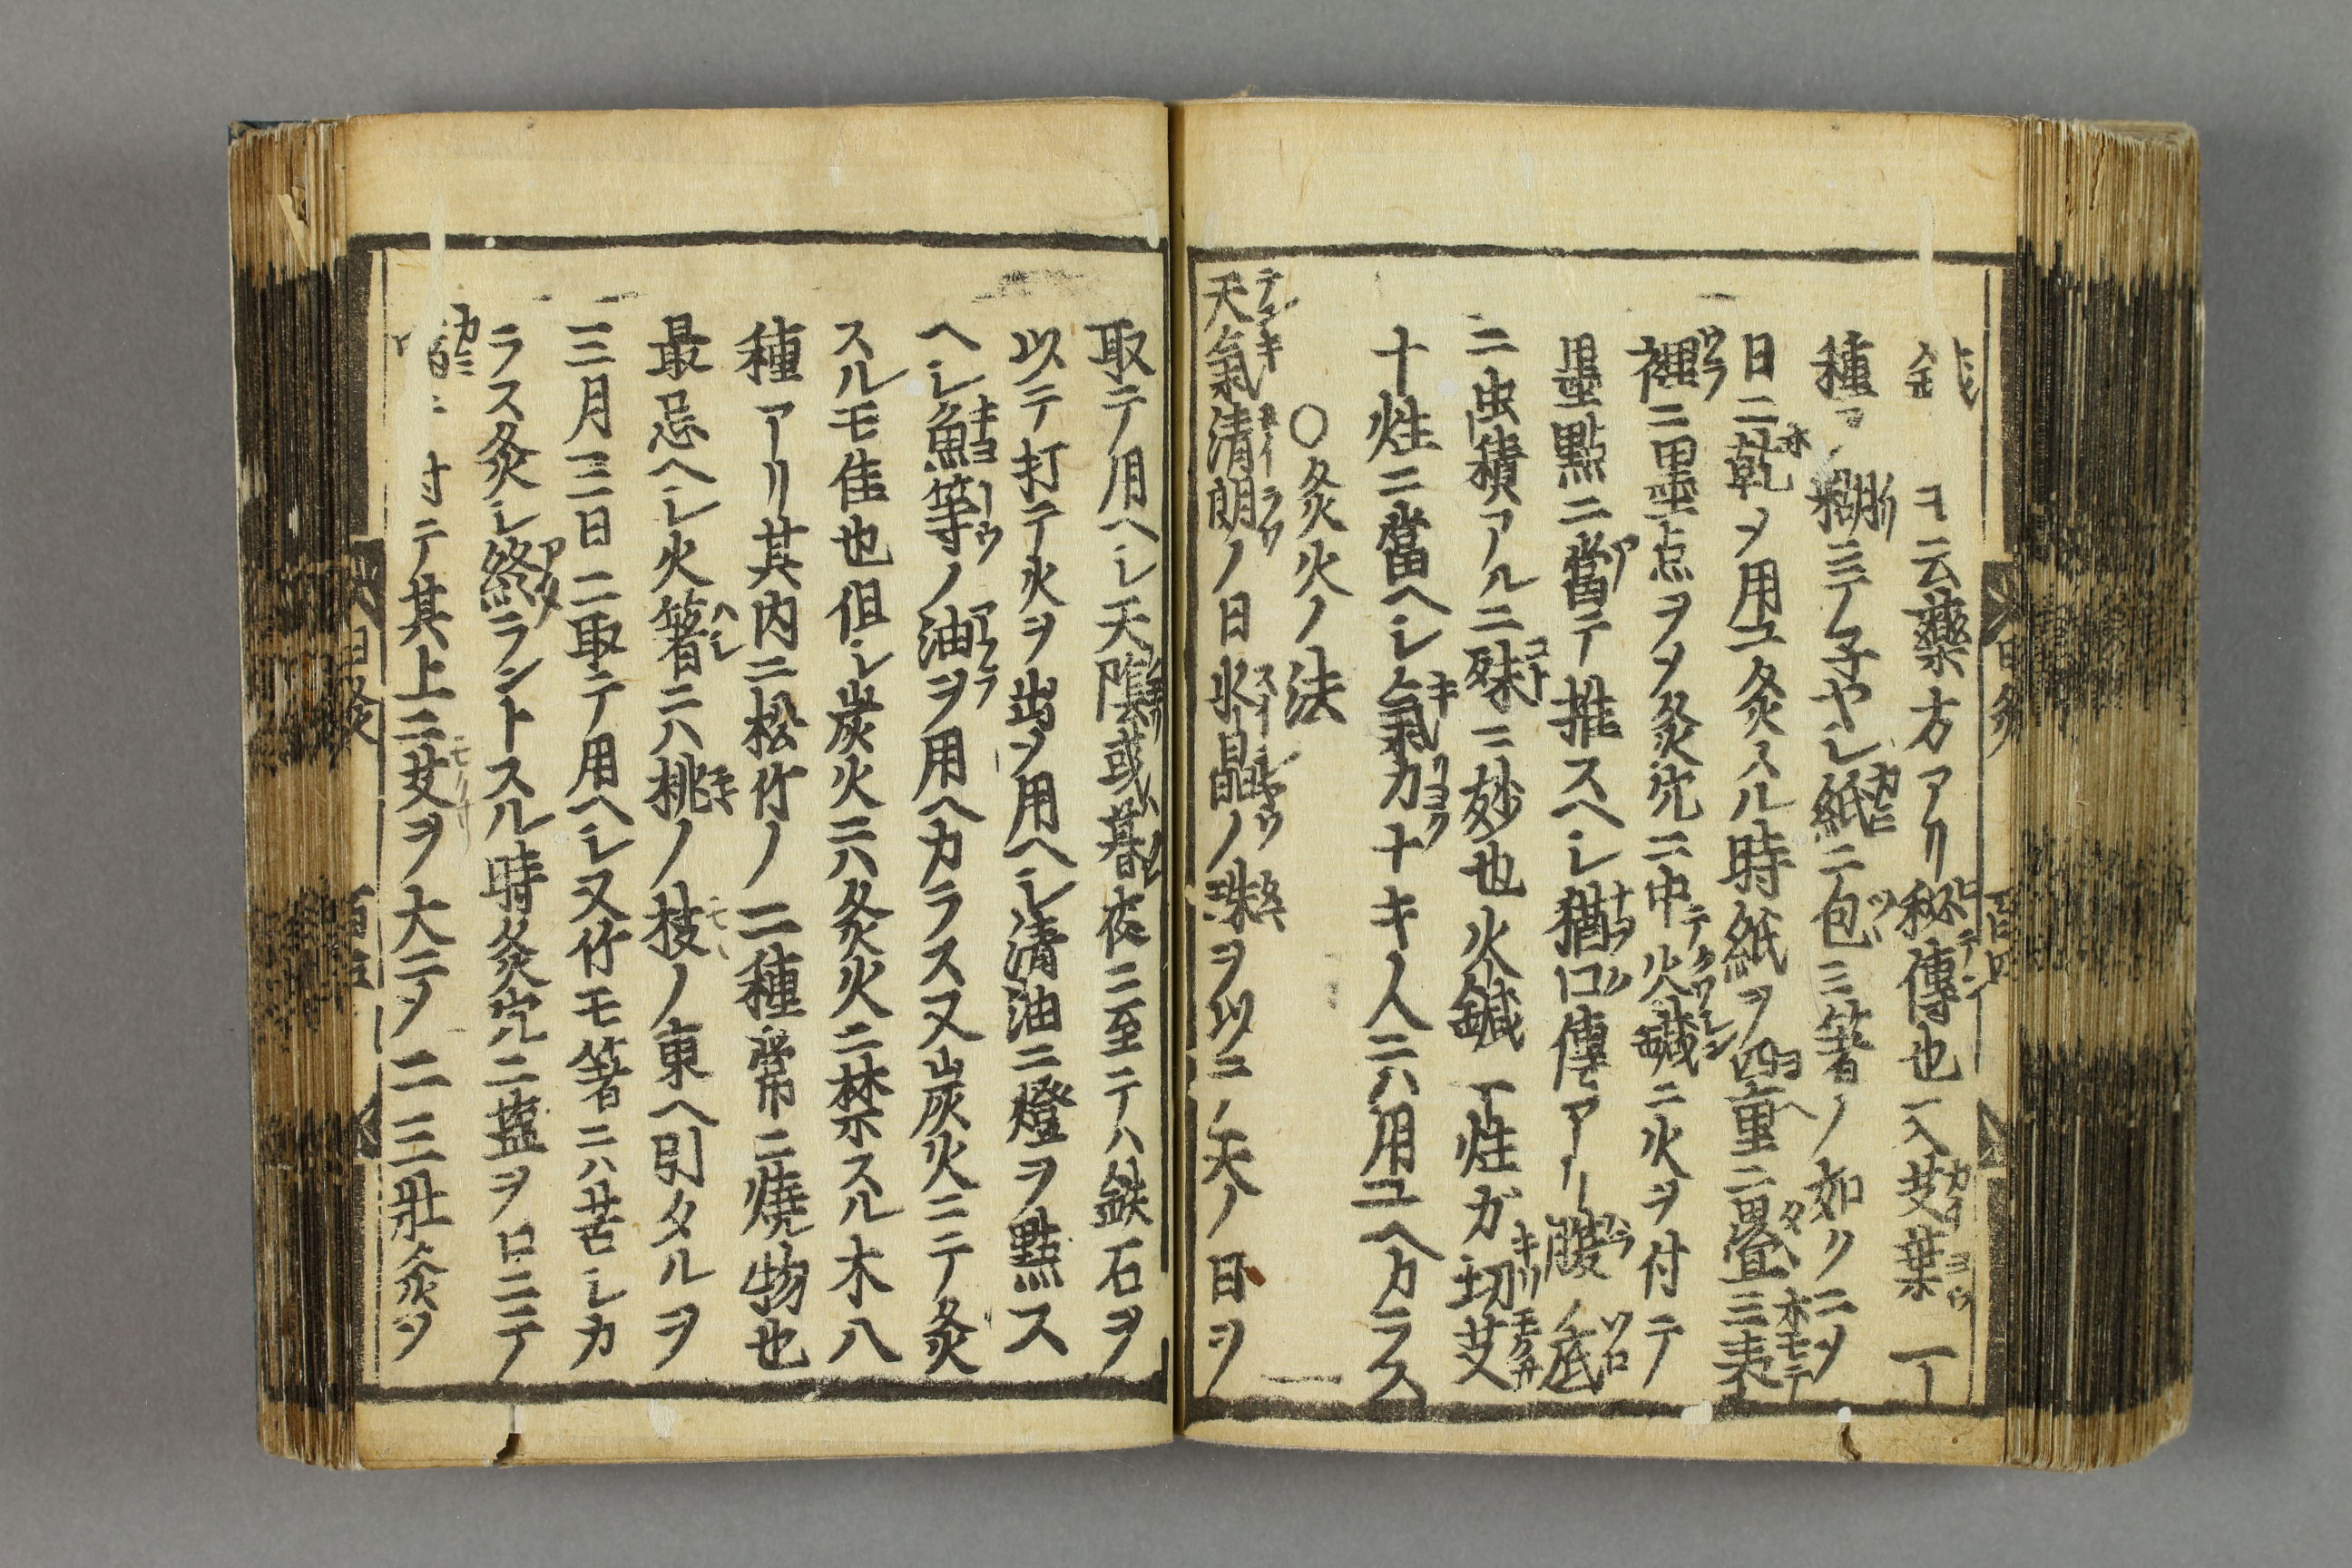 云藥方アリ秘傳也一入艾葉
種糊ニテ子ヤシ紙ニ包ミ箸ノ如クニシ
日ニ乾ヲ用ユ灸スル時紙ヲ四重ニ畳ミ表
裡ニ墨点ヲソ灸穴ニ中テ火鍼ニ火ヲ付テ
墨點ニ當テ推スヘシ猶口傳アリ腹ノ底
ニ虫積アルニ殊ニ妙也火鍼一炷ガ切艾
十炷ニ當ヘシ氣力ナキ人ニハ用ユヘカラス
〇灸火ノ法
天氣清朗ノ日水晶ノ珠ヲ以テ天ノ日ヲ
取テ用ヘシ天陰或ハ暮夜ニ至テハ鉄石ヲ
以テ打テ火ヲ出ソ用ヘシ清油ニ燈ヲ點ス
ヘシ魚等ノ油ヲ用ヘカラス又炭火ニテ灸
スルモ佳也但シ炭火ニハ灸火ニ禁スル木八
種アリ其内ニ松竹ノ二種常ニ燒物也
最忌ヘシ火箸ニハ桃ノ枝ノ東ヘ引タルヲ
三月三日ニ取テ用ヘシ又竹モ箸ニハ苦シカ
ラス灸シ終ラントスル時灸穴ニ藍ヲ口ニテ
テ其上ニ艾ヲ大ニソ二三壯灸ソ